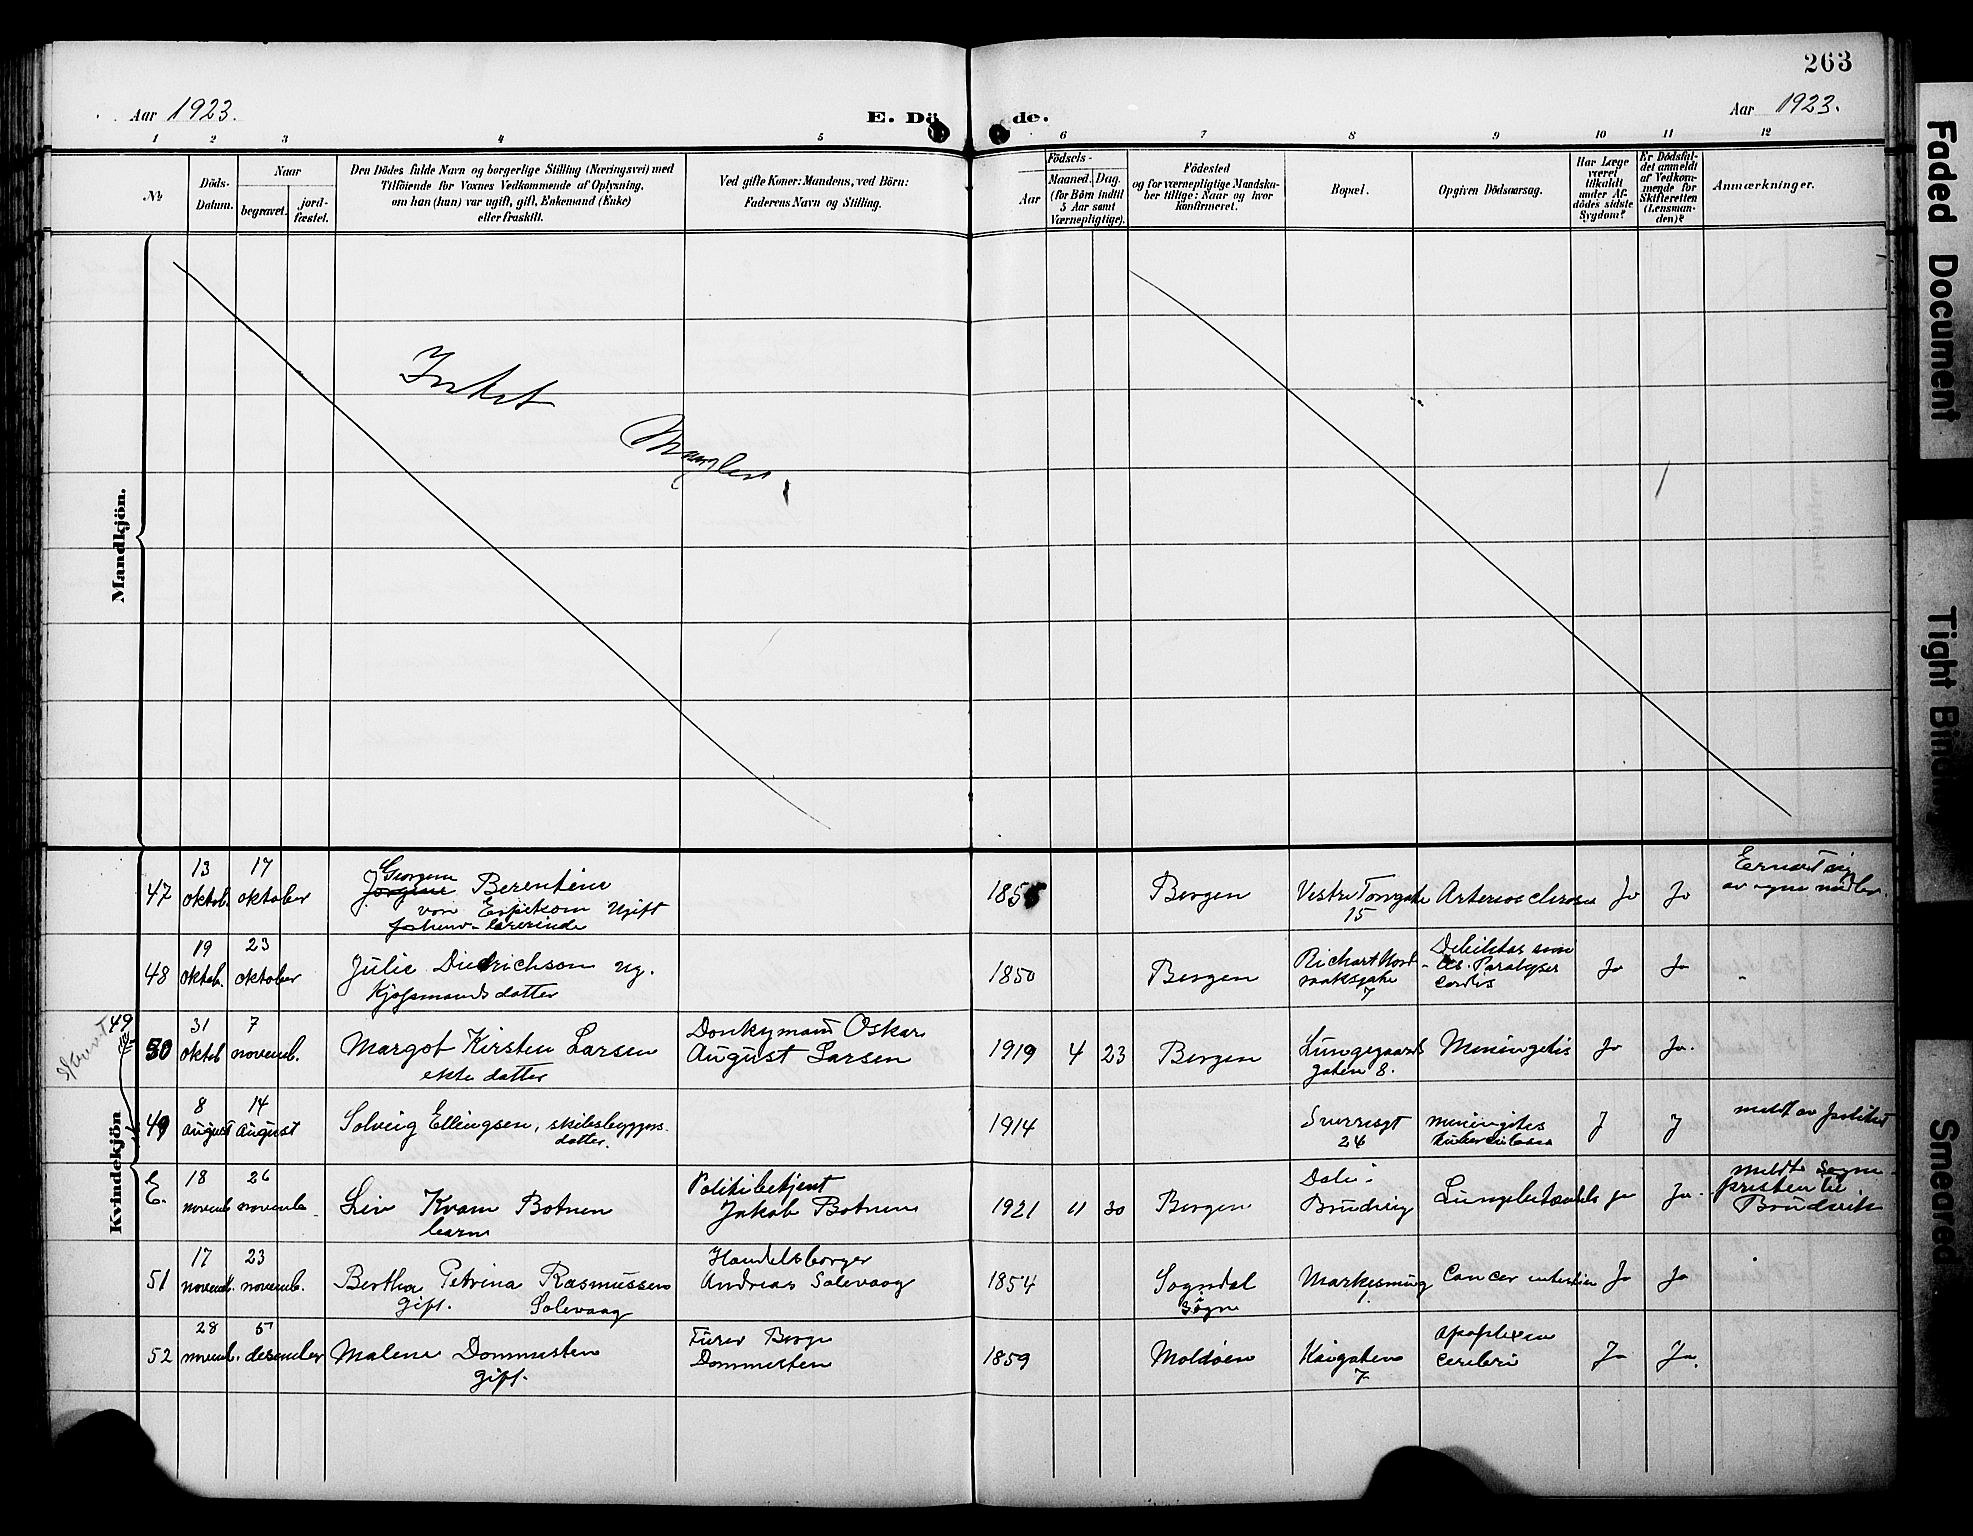 263
Aar 1923.
E. Dö de.
Aar 1923.
1 2 3 4 5 6 7 8 9 10 11 12
No
Döds-
Datum.
Naar
begravet.
jord-
fæstet.
Den Dödes fulde Navn og borgerlige Stilling (Næringsvei) med
Tilföiende for Voxnes Vedkommende af Oplysning,
om han (hun) var ugift, gift, Enkemand (Enke)
eller fraskilt.
Ved gifte Koner: Mandens, ved Börn:
Faderens Navn og Stilling.
Födsels-
Aar
Maaned. Dag.
(for Börn indtil
5 Aar samt
Værnepligtige).
Födested
og for værnepligtige Mandska-
ber tillige: Naar og hvor
konfirmeret.
Bopæl.
Opgiven Dödsaarsag.
Har Læge
været
tilkaldt
under Af-
dödes sidste
Sygdom?
Er Dödsfal-
det anmeldt
af Vedkom-
mende for
Skifteretten
(Lensman-
den)?
Anmærkninger.
Mandkjön.
Intet
Mangler
Kvindekjön
47
13
oktob.
17
oktober
Georgine
Jorgine Berentine
von Ugift
lærerinde
185
Bergen
Vestre Torvgate
15
Arteriosclerose
Ja
Ja
48
19
oktob.
23
oktober
Julie Diedrichson ug.
Kjøpmands datter
1850
Bergen
Richart Nord-
raaksgate
7
Debilitas
Paralyses
Cordis
Ja
Ja
"
49
50
31
oktob
7
novemb.
Margot Kirsten Larsen
ekte datter
Donkymand Oskar
August Larsen
1919 4 23
Bergen
Lungegaards
gaten 8.
Meningitis
Ja
Ja.
49
8
august
14
August
Solveig Ellingsen, skibsbyggers
datter.
1914
Sverresgt
24
meningitis
tuberculosa
J
J
meldt av
E.
18
novemb
26
novemb
Liv Kvam Botnen
barn
Politibetjent
Jakob Botnen
1921 11 30
Bergen
Brudvig
Lungebetændelse
Ja
Ja.
meldt Sogne-
presten til
Brudvik
51
17
novemb.
23
novemb.
Bertha Petrina Rasmussen
gift. Solevaag
Handelsborger
Andreas Solevaag
1854
Sogndal
i Sogn
Markesmug
1.
Cancer
Ja
Ja
52
28
novemb.
5
desember
Malene Dommesten
gift.
Furer Børge
Dommesten
1859
Moldøen
Kaigaten
7
Apoplexia
Cerebri
Ja
Ja.
Faded Document
Tight Bindi
Smeared